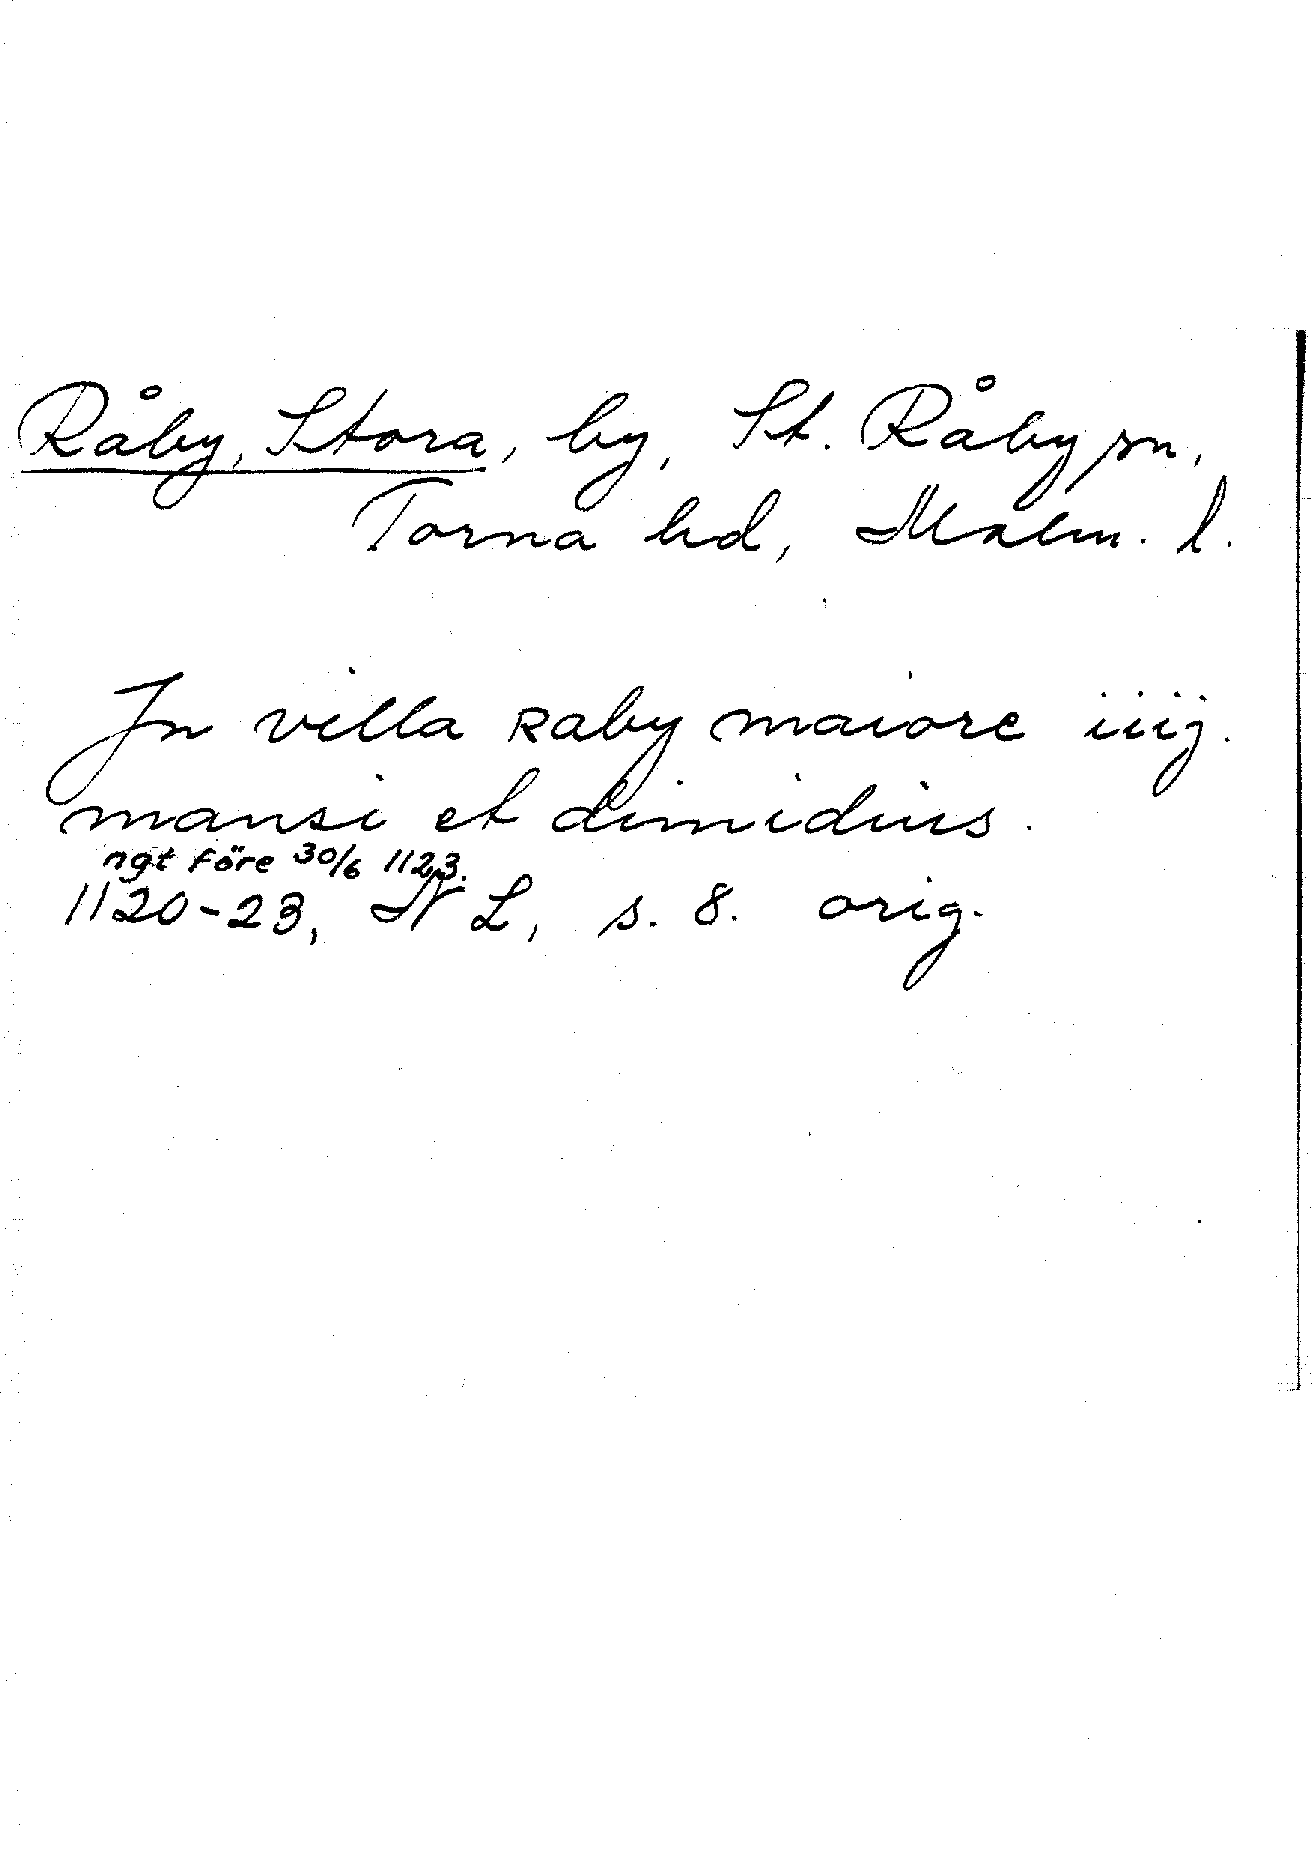 Råby, Stora, by, St. Råby sn,
Torna hd, Malm. l.
Jn villa Raby maiore iiij.
mansi et dimidius.
ngt före 30/6 1123.
1120-23, N L, s. 8. orig.